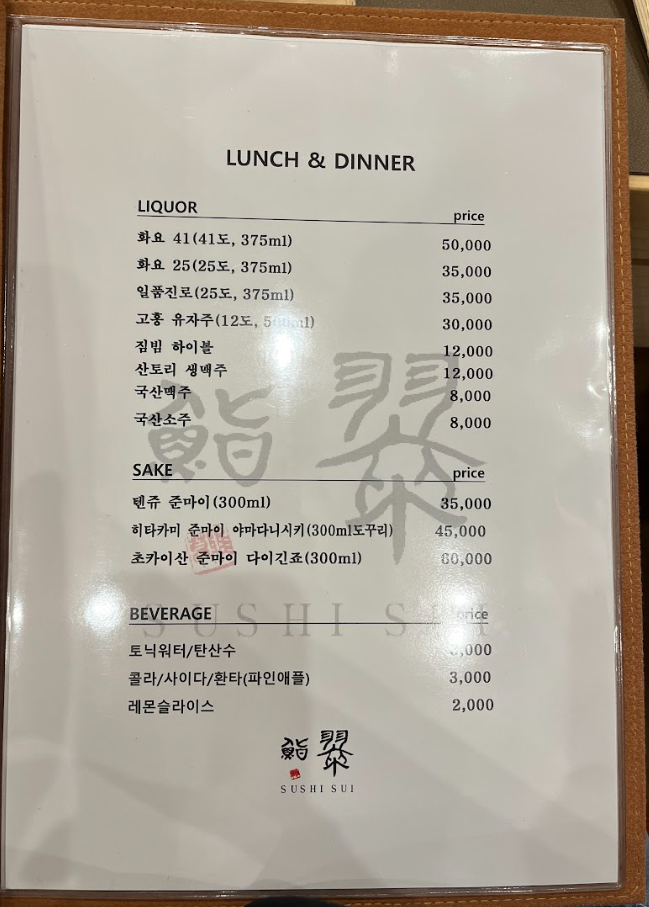 LUNCH & DINNER
LIQUOR price
화요 41(41도, 375ml) 50,000
화요 25(25도, 375ml) 35,000
일품진로(25도, 375ml) 35,000
고흥 유자주(12도, 30,000
짐빔 하이볼 12,000
산토리 생맥주 12,000
국산맥주 8,000
국산소주 8,000
鮨 翠
SAKE price
텐쥬 준마이(300ml) 35,000
히타카미 준마이 야마다니시키(300ml도꾸리) 45,000
초카이산 준마이 다이긴죠(300ml)
BEVERAGE price
SUSHI SUI
토닉워터/탄산수
콜라/사이다/환타(파인애플) 3,000
레몬슬라이스 2,000
鮨 翠
SUSHI SUI